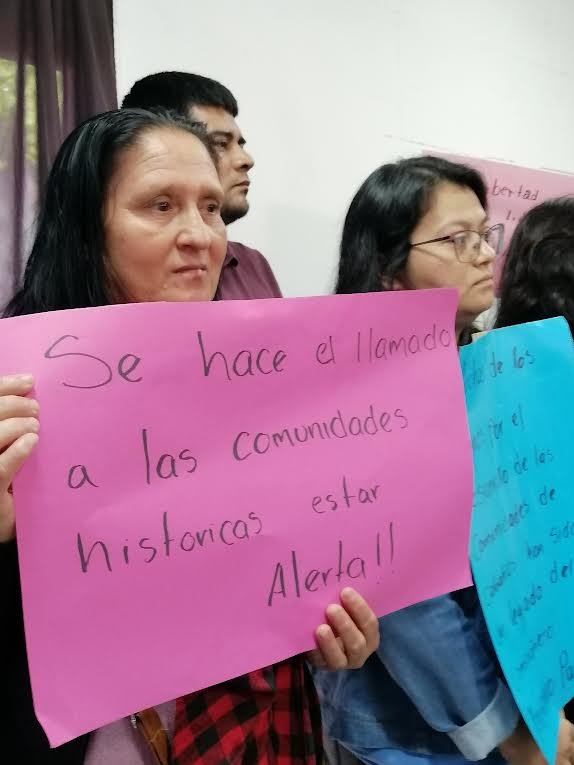 Se hace el llamado
a las comunidades
historicas estar
Alerta!!
bertad
de los
por el
de las
comunidades de
han sido
legado del